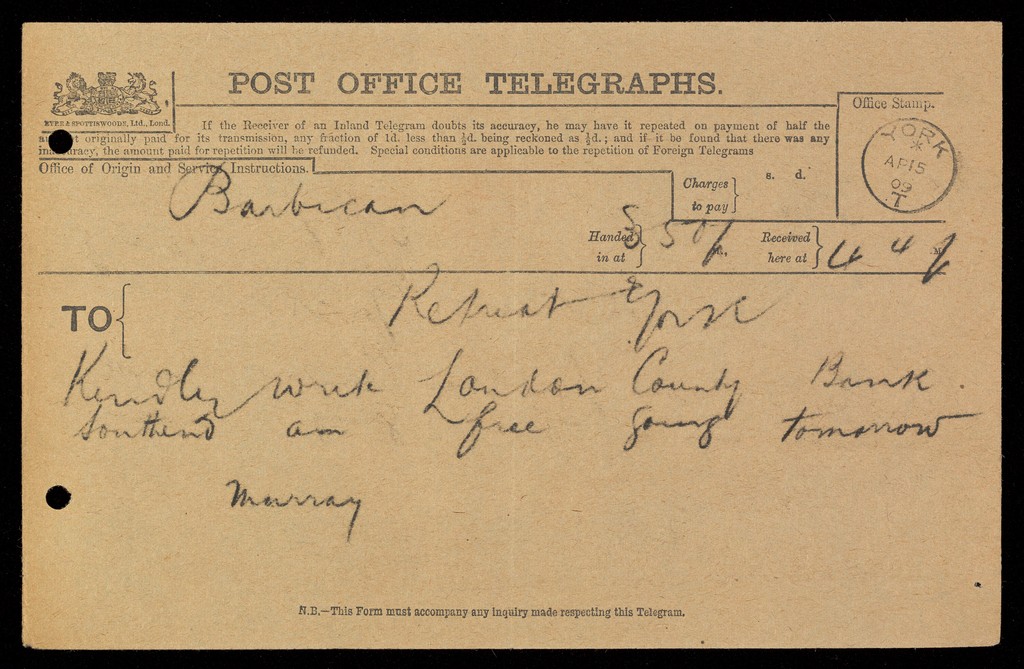 POST OFFICE TELEGRAPHS.
EYRE & SPOTTISWOODE, Ltd., Lond.
If the Receiver of an Inland Telegram doubts its accuracy, he may have it repeated on payment of half the
originally paid for its transmission, any fraction of 1d. less than ½d. being reckoned as ½d.; and if it be found that there was any
inaccuracy, the amount paid for repetition will be refunded. Special conditions are applicable to the repetition of Foreign Telegrams
Office Stamp.
YORK
AP 15
09
T
Office of Origin and Service Instructions.
Barbican
Charges to pay
s. d.
Handed in at
Received here at
4 4
M
TO
Retreat York
Kindly write London County Bank.
Southend am free going tomorrow
Murray
N.B.—This Form must accompany any inquiry made respecting this Telegram.